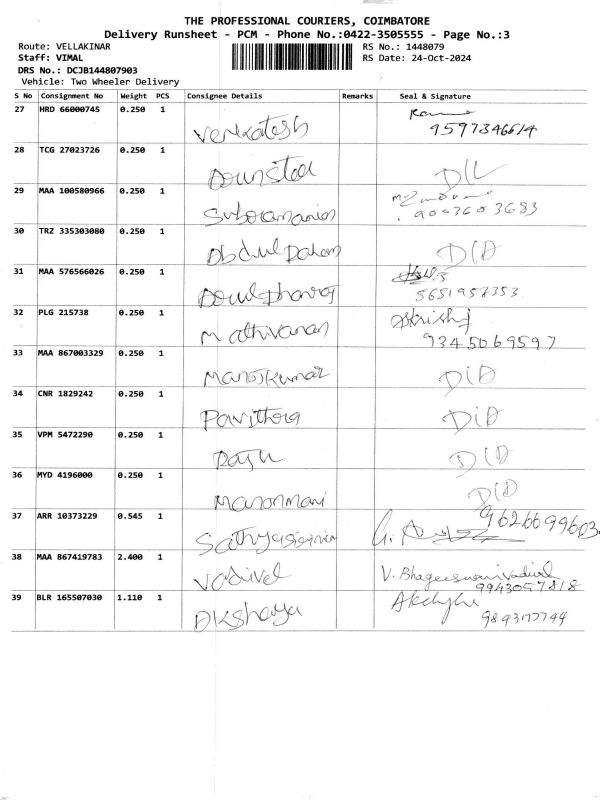 THE PROFESSIONAL COURIERS, COIMBATORE
Delivery Runsheet - PCM - Phone No.:0422-3505555 - Page No.:3
Route: VELLAKINAR RS No.: 1448079
Staff: VIMAL RS Date: 24-Oct-2024
DRS No.: DCJB144807903
Vehicle: Two Wheeler Delivery
S No Consignment No Weight PCS Consignee Details Remarks Seal & Signature
27 HRD 66000745 0.250 1
Venkatesh 9597346614
28 TCG 27023726 0.250 1
D/L
29 MAA 100580966 0.250 1
Subramanian 9003603683
30 TRZ 335303080 0.250 1
Abdul D/D
31 MAA 576566026 0.250 1
5681957353
32 PLG 215738 0.250 1
Mathivanan 9345069597
33 MAA 867003329 0.250 1
Manojkumar D/D
34 CNR 1829242 0.250 1
Pavithra D/D
35 VPM 5472290 0.250 1
Raju D/D
36 MYD 4196000 0.250 1
Manonmani D/D
37 ARR 10373229 0.545 1
9626699603
38 MAA 867419783 2.400 1
Vadivel V. Bhageeswari Vadivel
9943057818
39 BLR 165507030 1.110 1
Akshaya
9893177744